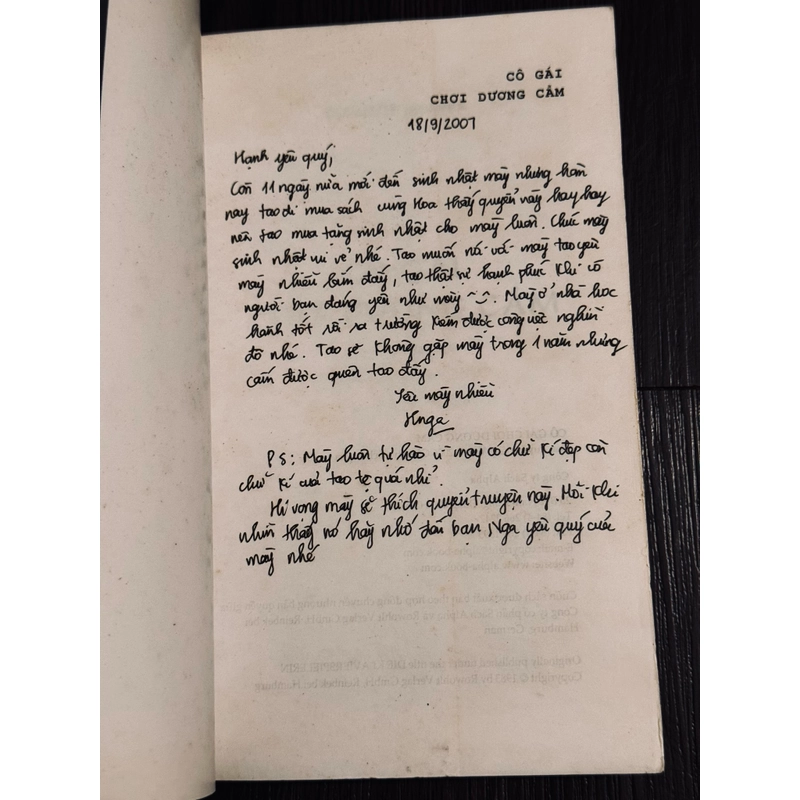 CÔ GÁI
CHƠI DƯƠNG CẦM
18/9/2007
Hạnh yêu quý,
Còn 11 ngày nữa mới đến sinh nhật mày nhưng hôm
nay tao đi mua sách cùng Hoa thấy quyển này hay hay
nên tao mua tặng sinh nhật cho mày luôn. Chúc mày
sinh nhật vui vẻ nhé. Tao muốn nói với mày tao yêu
mày nhiều lắm đấy, tao thật sự hạnh phúc khi có
người bạn đáng yêu như mày. Mày ở nhà học
hành tốt rồi ra trường kiếm được công việc nghìn
đô nhé. Tao sẽ không gặp mày trong 1 năm nhưng
cấm được quên tao đấy.
Yêu mày nhiều
Hnga
PS: Mày luôn tự hào vì mày có chữ kí đẹp còn
chữ kí của tao tệ quá nhỉ.
Hi vọng mày sẽ thích quyển truyện này. Mỗi khi
nhìn thấy nó hãy nhớ đến bạn Nga yêu quý của
mày nhé